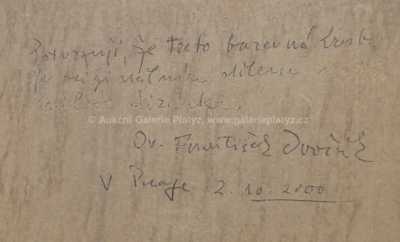 Potvrzuji, že tato barevná kresba
je originálním dílem
© Aukční Galerie Platýz, www.galerieplatyz.cz
Dr. František Dvořák
V Praze 2. 10. 2000